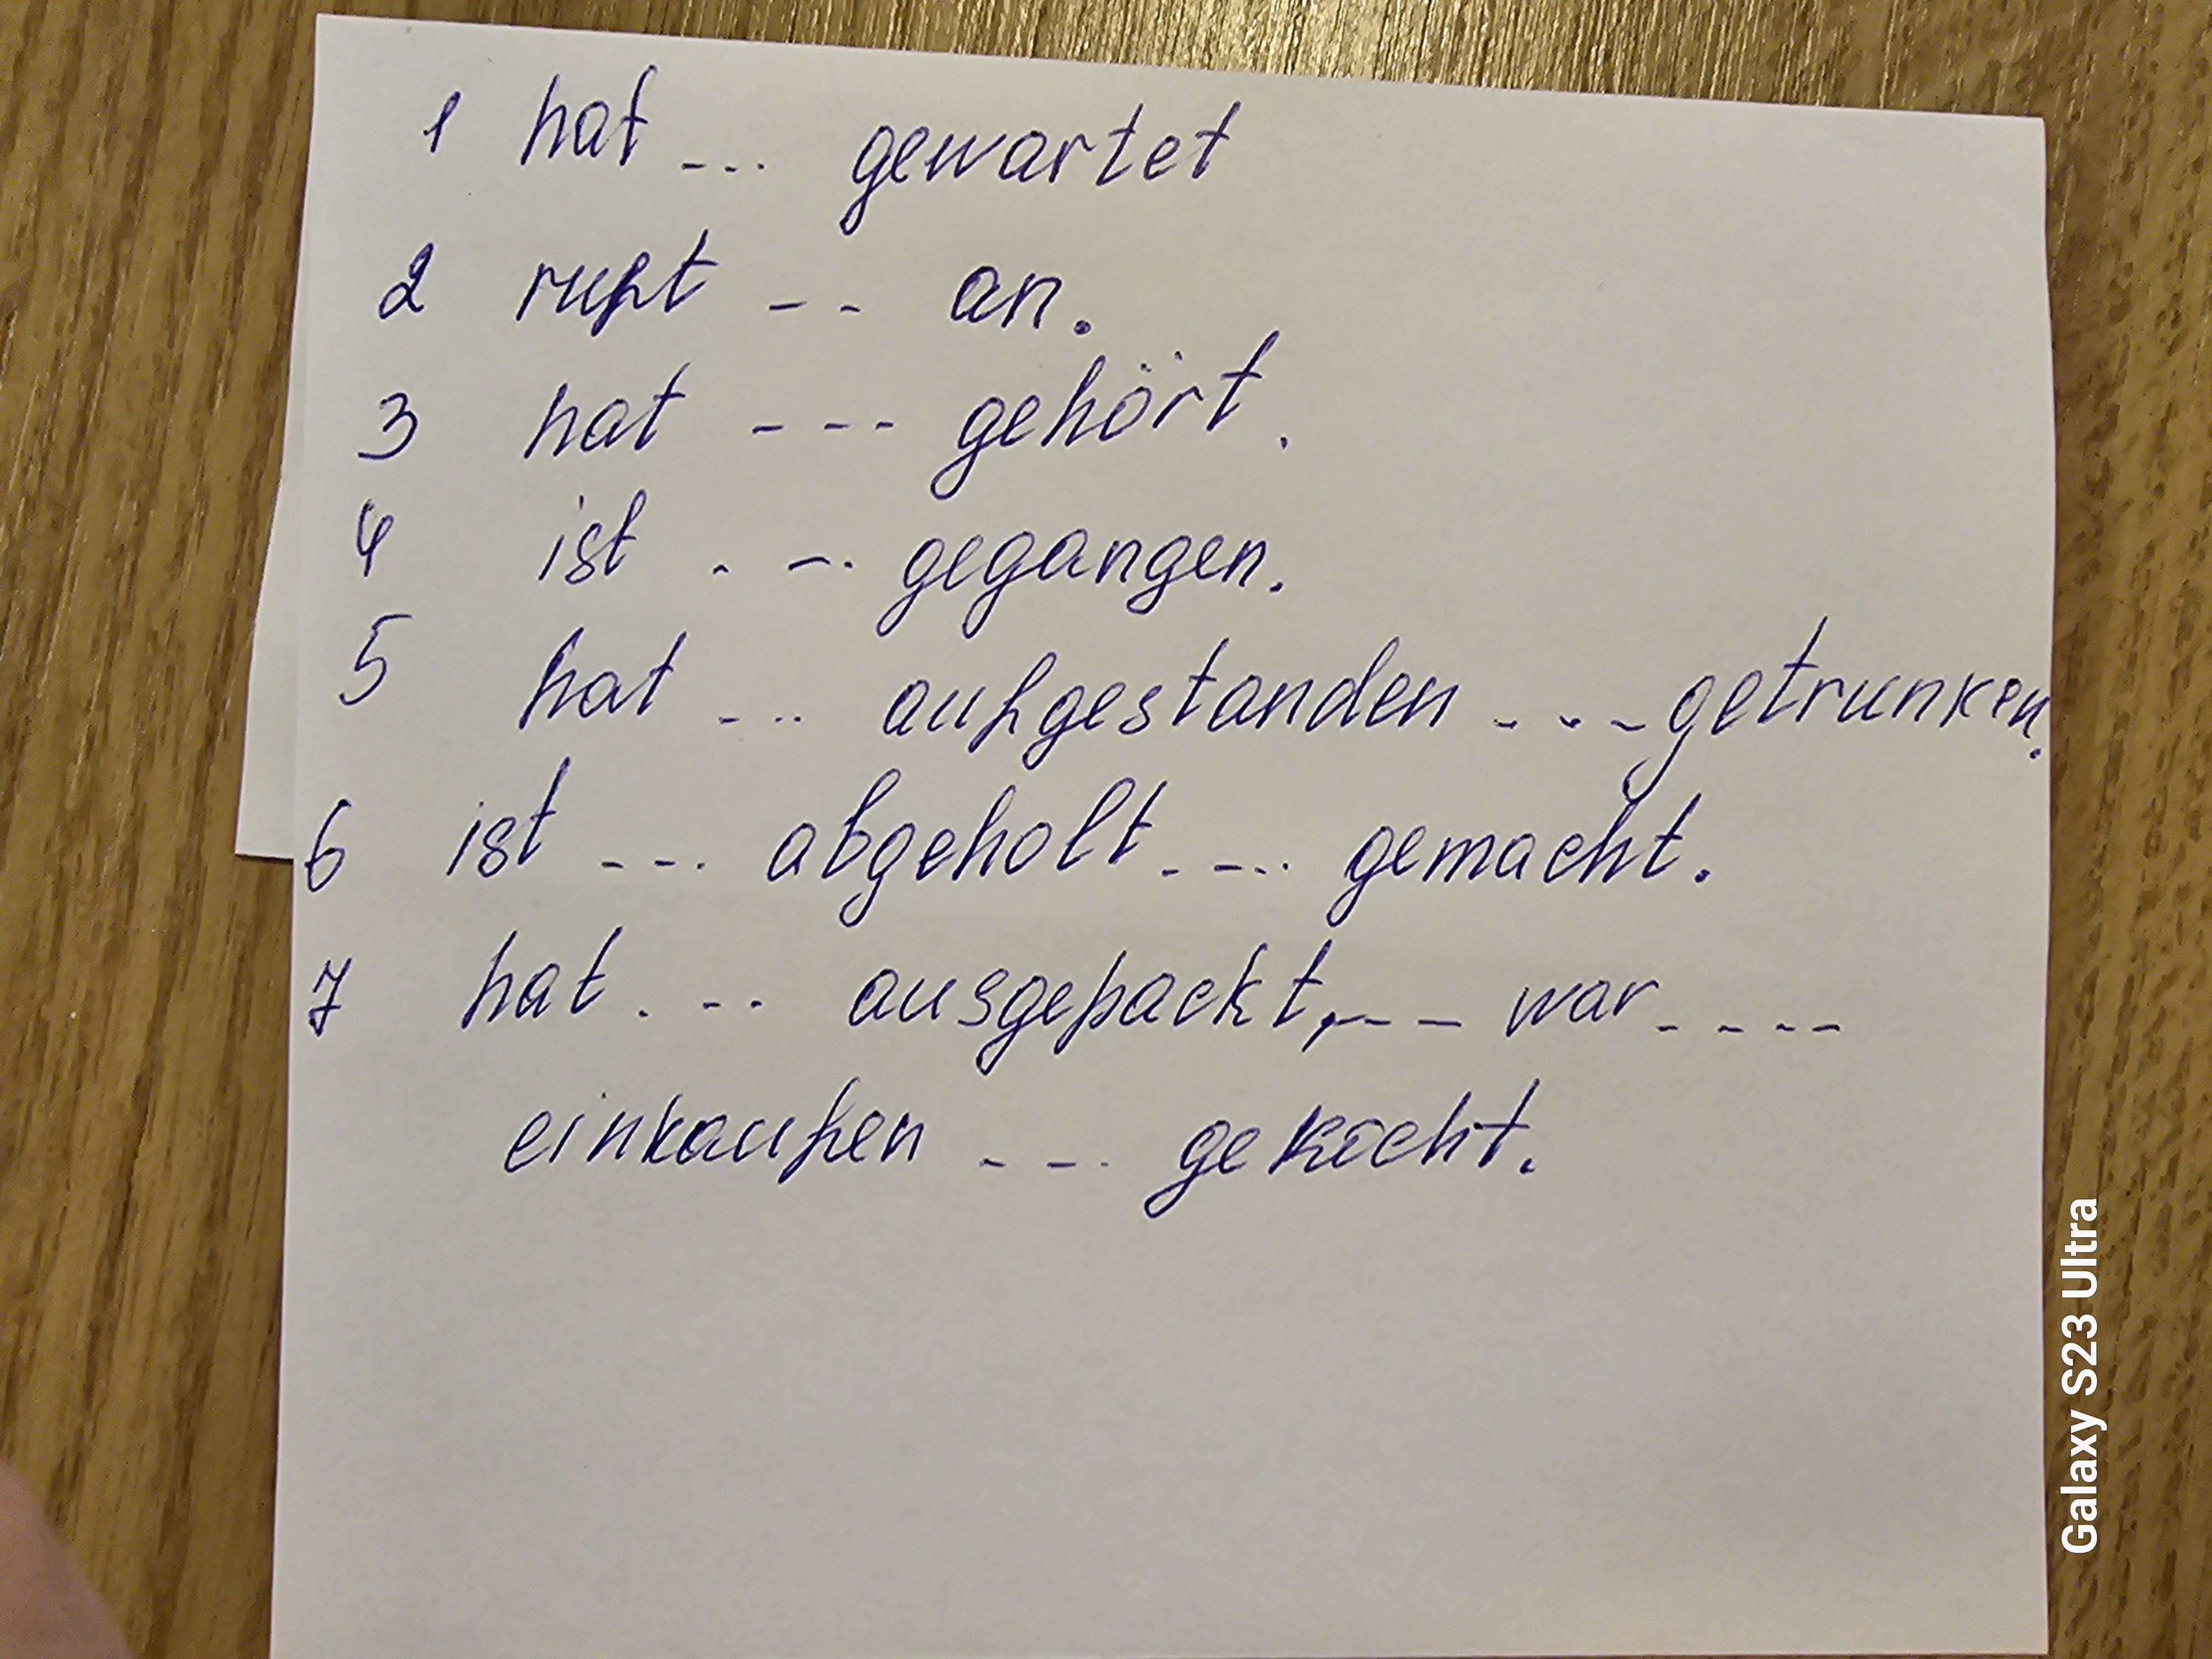 1 hat --- gewartet
2 ruft -- an.
3 hat --- gehört.
4 ist --- gegangen.
5 hat --- aufgestanden --- getrunken.
6 ist --- abgeholt ---- gemacht.
7 hat --- ausgepackt, -- war ----
einkaufen --- gekocht.
Galaxy S23 Ultra